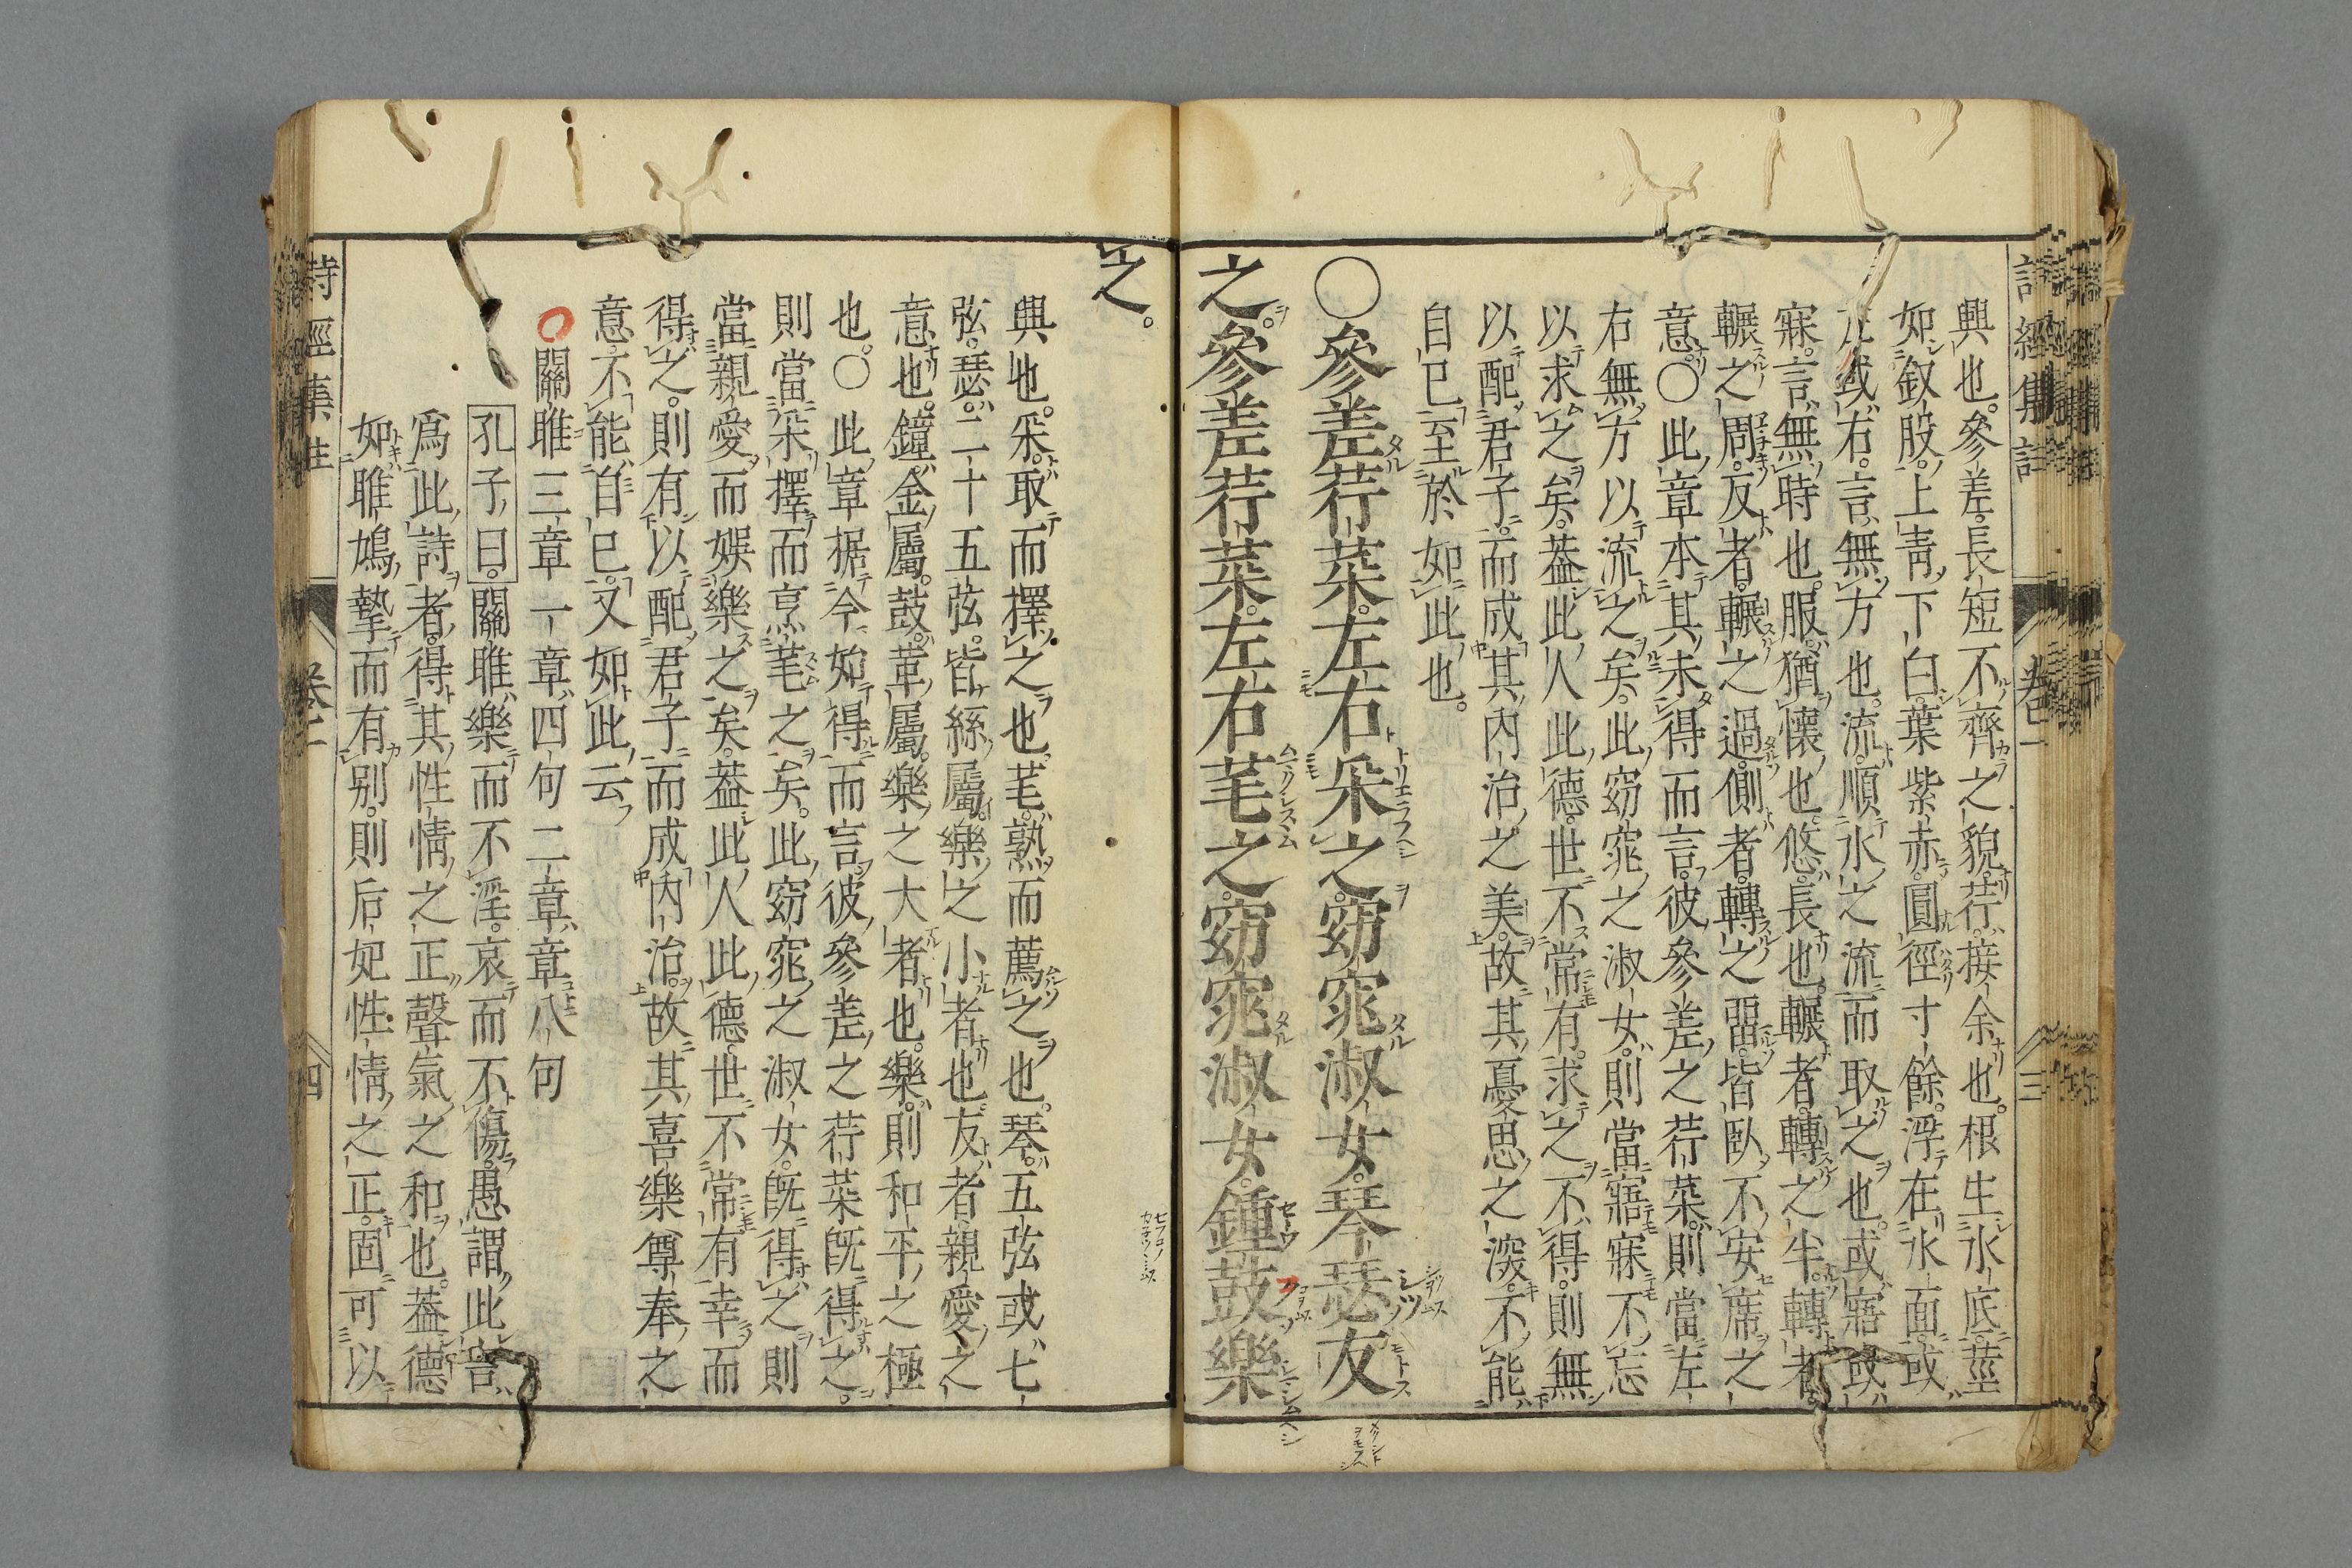 詩經集註 卷一 三
興也。參差。長短不齊之貌。荇。接余也。根生水底。莖
如釵股。上青下白。葉紫赤。圓徑寸餘。浮在水面。或
左或右。言無方也。流。順水之流而取之也。或寤或
寐。言無時也。服。猶懷也。悠。長也。輾者。轉之半。轉者。
輾之周。反者。輾之過。側者。轉之留。皆臥不安席之
意。○此章本其未得而言。彼參差之荇菜。則當左
右無方以流之矣。此窈窕之淑女。則當寤寐不忘
以求之矣。蓋此人此德。世不常有。求之不得。則無
以配君子。而成其內治之美。故其憂思之深。不能
自已。至於如此也。
○參差荇菜。左右采之。窈窕淑女。琴瑟友
之。參差荇菜。左右芼之。窈窕淑女。鍾鼓樂
之。
興也。采。取而擇之也。芼。熟而薦之也。琴。五弦或七
弦。瑟。二十五弦。皆絲屬。樂之小者也。友者。親愛之
意也。鐘。金屬。鼓。革屬。樂之大者也。樂。則和平之極
也。○此章据今始得而言。彼參差之荇菜。既得之。
則當采擇而亨芼之矣。此窈窕之淑女。既得之。則
當親愛而娛樂之矣。蓋此人此德。世不常有。幸而
得之。則有以配君子而成內治。故其喜樂尊奉之
意。不能自已。又如此云
關雎三章一章四句二章章八句
孔子曰。關雎樂而不淫。哀而不傷。愚謂此言
爲此詩者。得其性情之正。聲氣之和也。蓋德
如雎鳩。摯而有別。則后妃性情之正。固可以
詩經集註 卷一 四